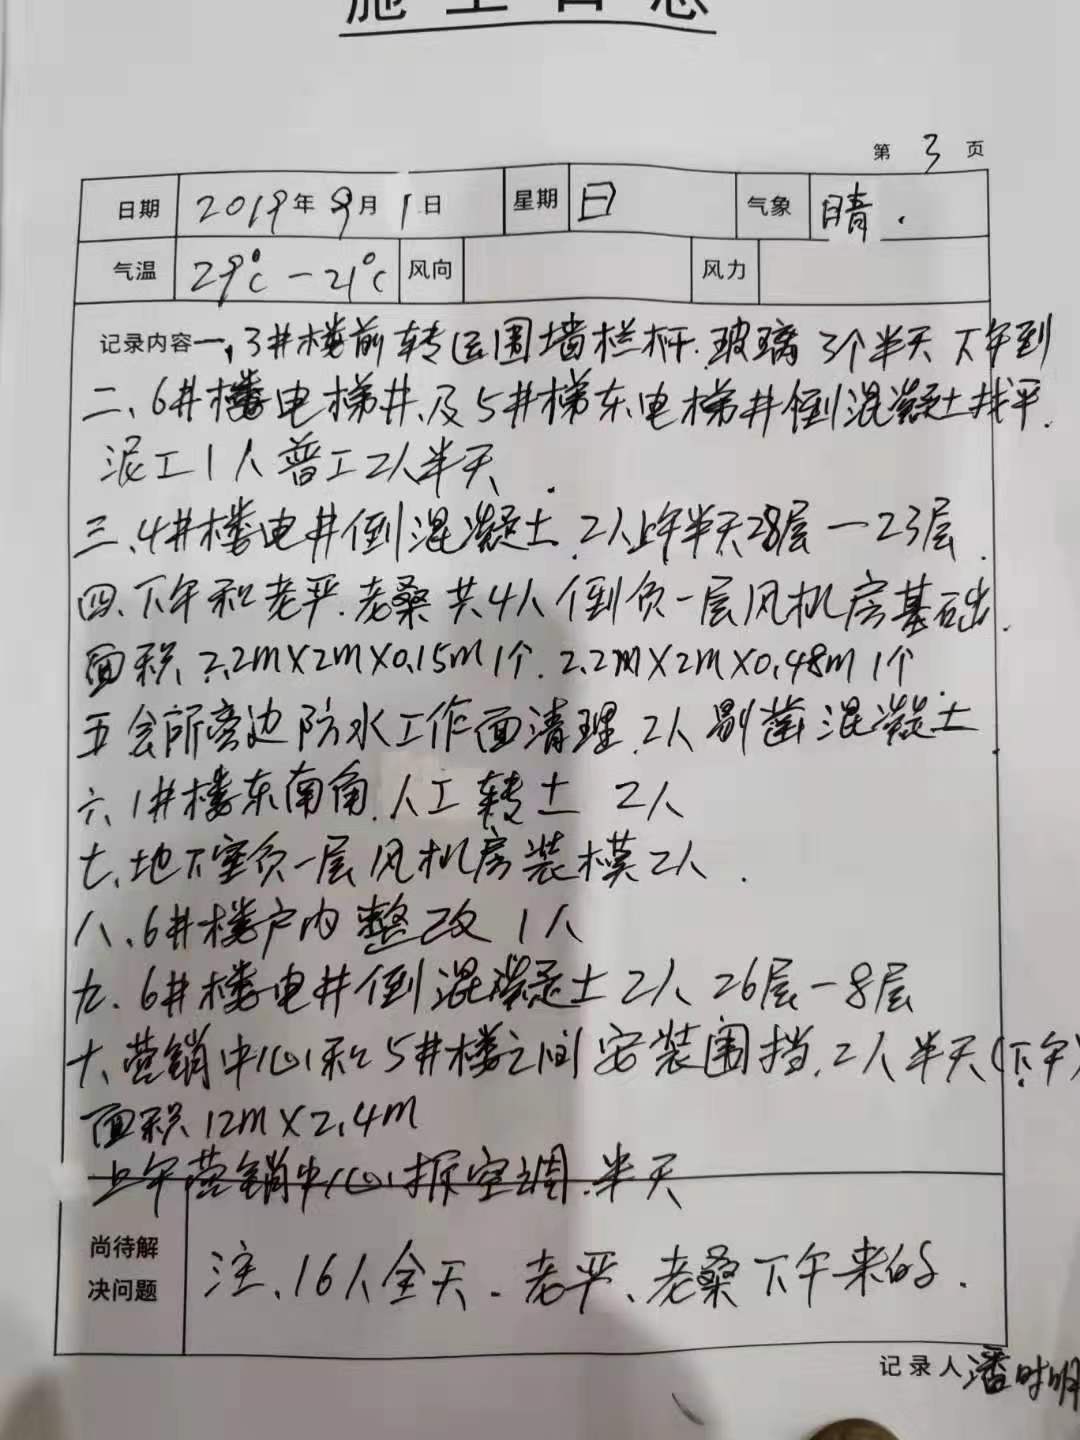 施工日志
第 3 页
日期 2019年9月1日 星期 日 气象 晴.
气温 29℃-21℃ 风向 风力
记录内容 一,3#楼前转运围墙栏杆.玻璃 3个半天 下午到
二、6#楼电梯井.及5#梯东电梯井倒混凝土找平.
泥工1人普工2人半天.
三.4#楼电井倒混凝土.2人上午半天28层-23层.
四.下午和老平.老桑共4人倒负一层风机房基础.
面积 2.2m×2m×0.15m 1个. 2.2m×2m×0.48m 1个
五 会所旁边防水工作面清理.2人剔凿混凝土.
六、1#楼东南角.人工转土 2人
七、地下室负一层风机房装模2人.
八、6#楼户内整改 1人
九.6#楼电井倒混凝土2人 26层-8层
十、营销中心和5#楼之间安装围挡.2人半天(下午)
面积12m×2.4m
上午营销中心拆空调.半天
尚待解
决问题
注、16人全天.老平、老桑下午来的.
记录人 潘时明